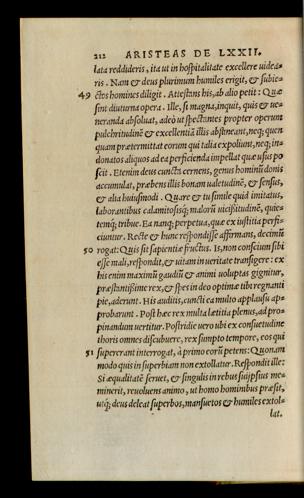 212 ARISTEAS DE LXXII.
lata reddideris, ita ut in hospitalitate excellere uidea-
ris. Nam & deus plurimum humiles erigit, & subie-
49 ctos homines diligit. Attestans his, ab alio petit: Quæ
sint diuturna opera. Ille, si magna, inquit, quis & ue-
neranda absoluat, adeò ut spectantes propter operum
pulchritudinē & excellentiā illis abstineant, neq; quen
quam prætermittat eorum qui talia expoliunt, neq; in-
donatos aliquos ad ea perficienda impellat quæ usus po
scit. Etenim deus cuncta cernens, genus hominū donis
accumulat, præbens illis bonam ualetudinē, & sensus,
& alia huiusmodi. Quare & tu simile quid imitatus,
laborantibus calamitosisq; malorū uicissitudinē, quie-
temq; tribue. Ea nanq; perpetua, quæ ex iustitia perfi-
ciuntur. Recte & hunc respondisse affirmans, decimū
50 rogat: Quis sit sapientiæ fructus. Is, non conscium sibi
esse mali, respondit, & uitam in ueritate transigere: ex
his enim maximū gaudiū & animi uoluptas gignitur,
præstantissime rex, & spes in deo optimæ tibi regnanti
pie, aderunt. His auditis, cuncti ea multo applausu ap-
probarunt. Post hæc rex multa lætitia plenus, ad pro-
pinandum uertitur. Postridie uero ubi ex consuetudine
thoris omnes discubuere, rex sumpto tempore, eos qui
51 supererant interrogat, à primo eorū petens: Quonam
modo quis in superbiam non extollatur. Respondit ille:
Si æqualitatē seruet, & singulis in rebus suiipsius me-
minerit, reuoluens animo, ut homo hominibus præsit,
utq; deus deleat superbos, mansuetos & humiles extol-
lat.